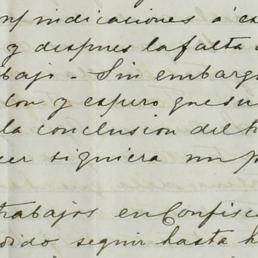 indicaciones á es
y despues la falta d
bajo - Sin embarg
con y espero que su
la conclusion del t
cer siquiera un p
trabajos en Confisc
dido seguir hasta h